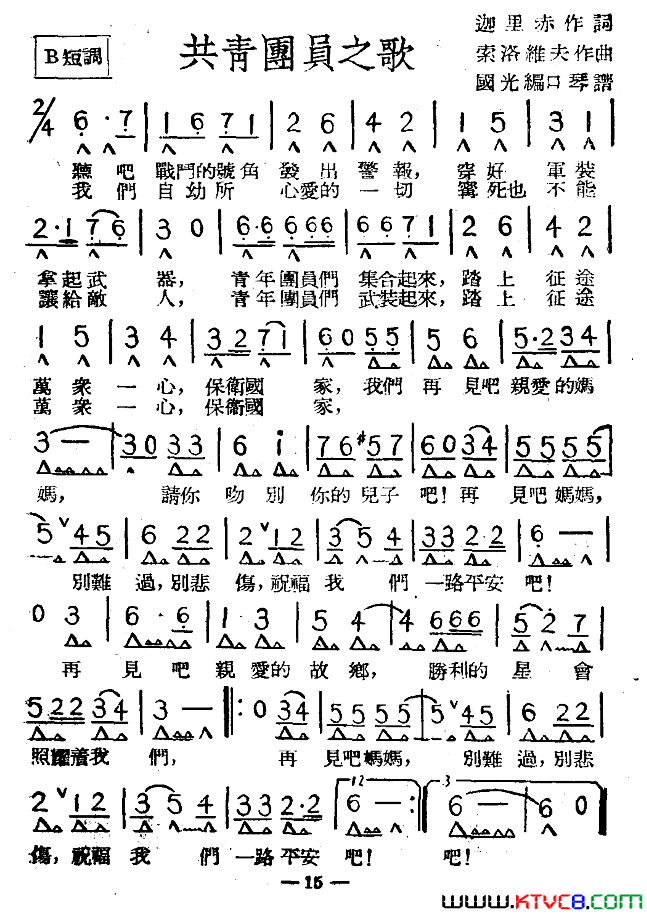 B 短調
共青團員之歌
迦里赤作詞
索洛維夫作曲
國光編口琴譜
2/4 6·7 | 1671 | 2 6 | 4 2 | 1 5 | 3 1
聽吧 戰鬥的號角 發出 警報, 穿好 軍裝
我們 自幼所 心愛的 一切 寧死也 不能
2·1 76 | 3 0 | 6·6 666 | 6671 | 2 6 | 4 2
拿起武 器, 青年團員們 集合起來, 踏上 征途
讓給敵 人, 青年團員們 武裝起來, 踏上 征途
1 5 | 3 4 | 3271 | 6055 | 5 6 | 5·234
萬衆 一心, 保衛國 家, 我們 再 見吧 親愛的媽
萬衆 一心, 保衛國 家,
3 — | 3033 | 6 i | 76#57 | 6034 | 5555
媽, 請你 吻別 你的兒子 吧! 再 見吧媽媽,
5 V 45 | 6 22 | 2 V 12 | 3 5 4 | 332·2 | 6 —
別難 過, 別悲 傷, 祝福 我 們 一路平安 吧!
0 3 | 6·6 | 1 3 | 5 4 | 4666 | 5 2 7
再 見 吧 親愛的 故 鄉, 勝利的 星 會
52234 | 3 — :||: 0 34 | 5555 | 5 V 45 | 6 22
照耀着我 們, 再 見吧媽媽, 別難 過, 別悲
12 3
2 V 12 | 3 5 4 | 332·2 | 6 — :|| 6 — | 6 0 ||
傷, 祝福 我 們 一路平安 吧! 吧!
— 15 —
www.KTVC8.com